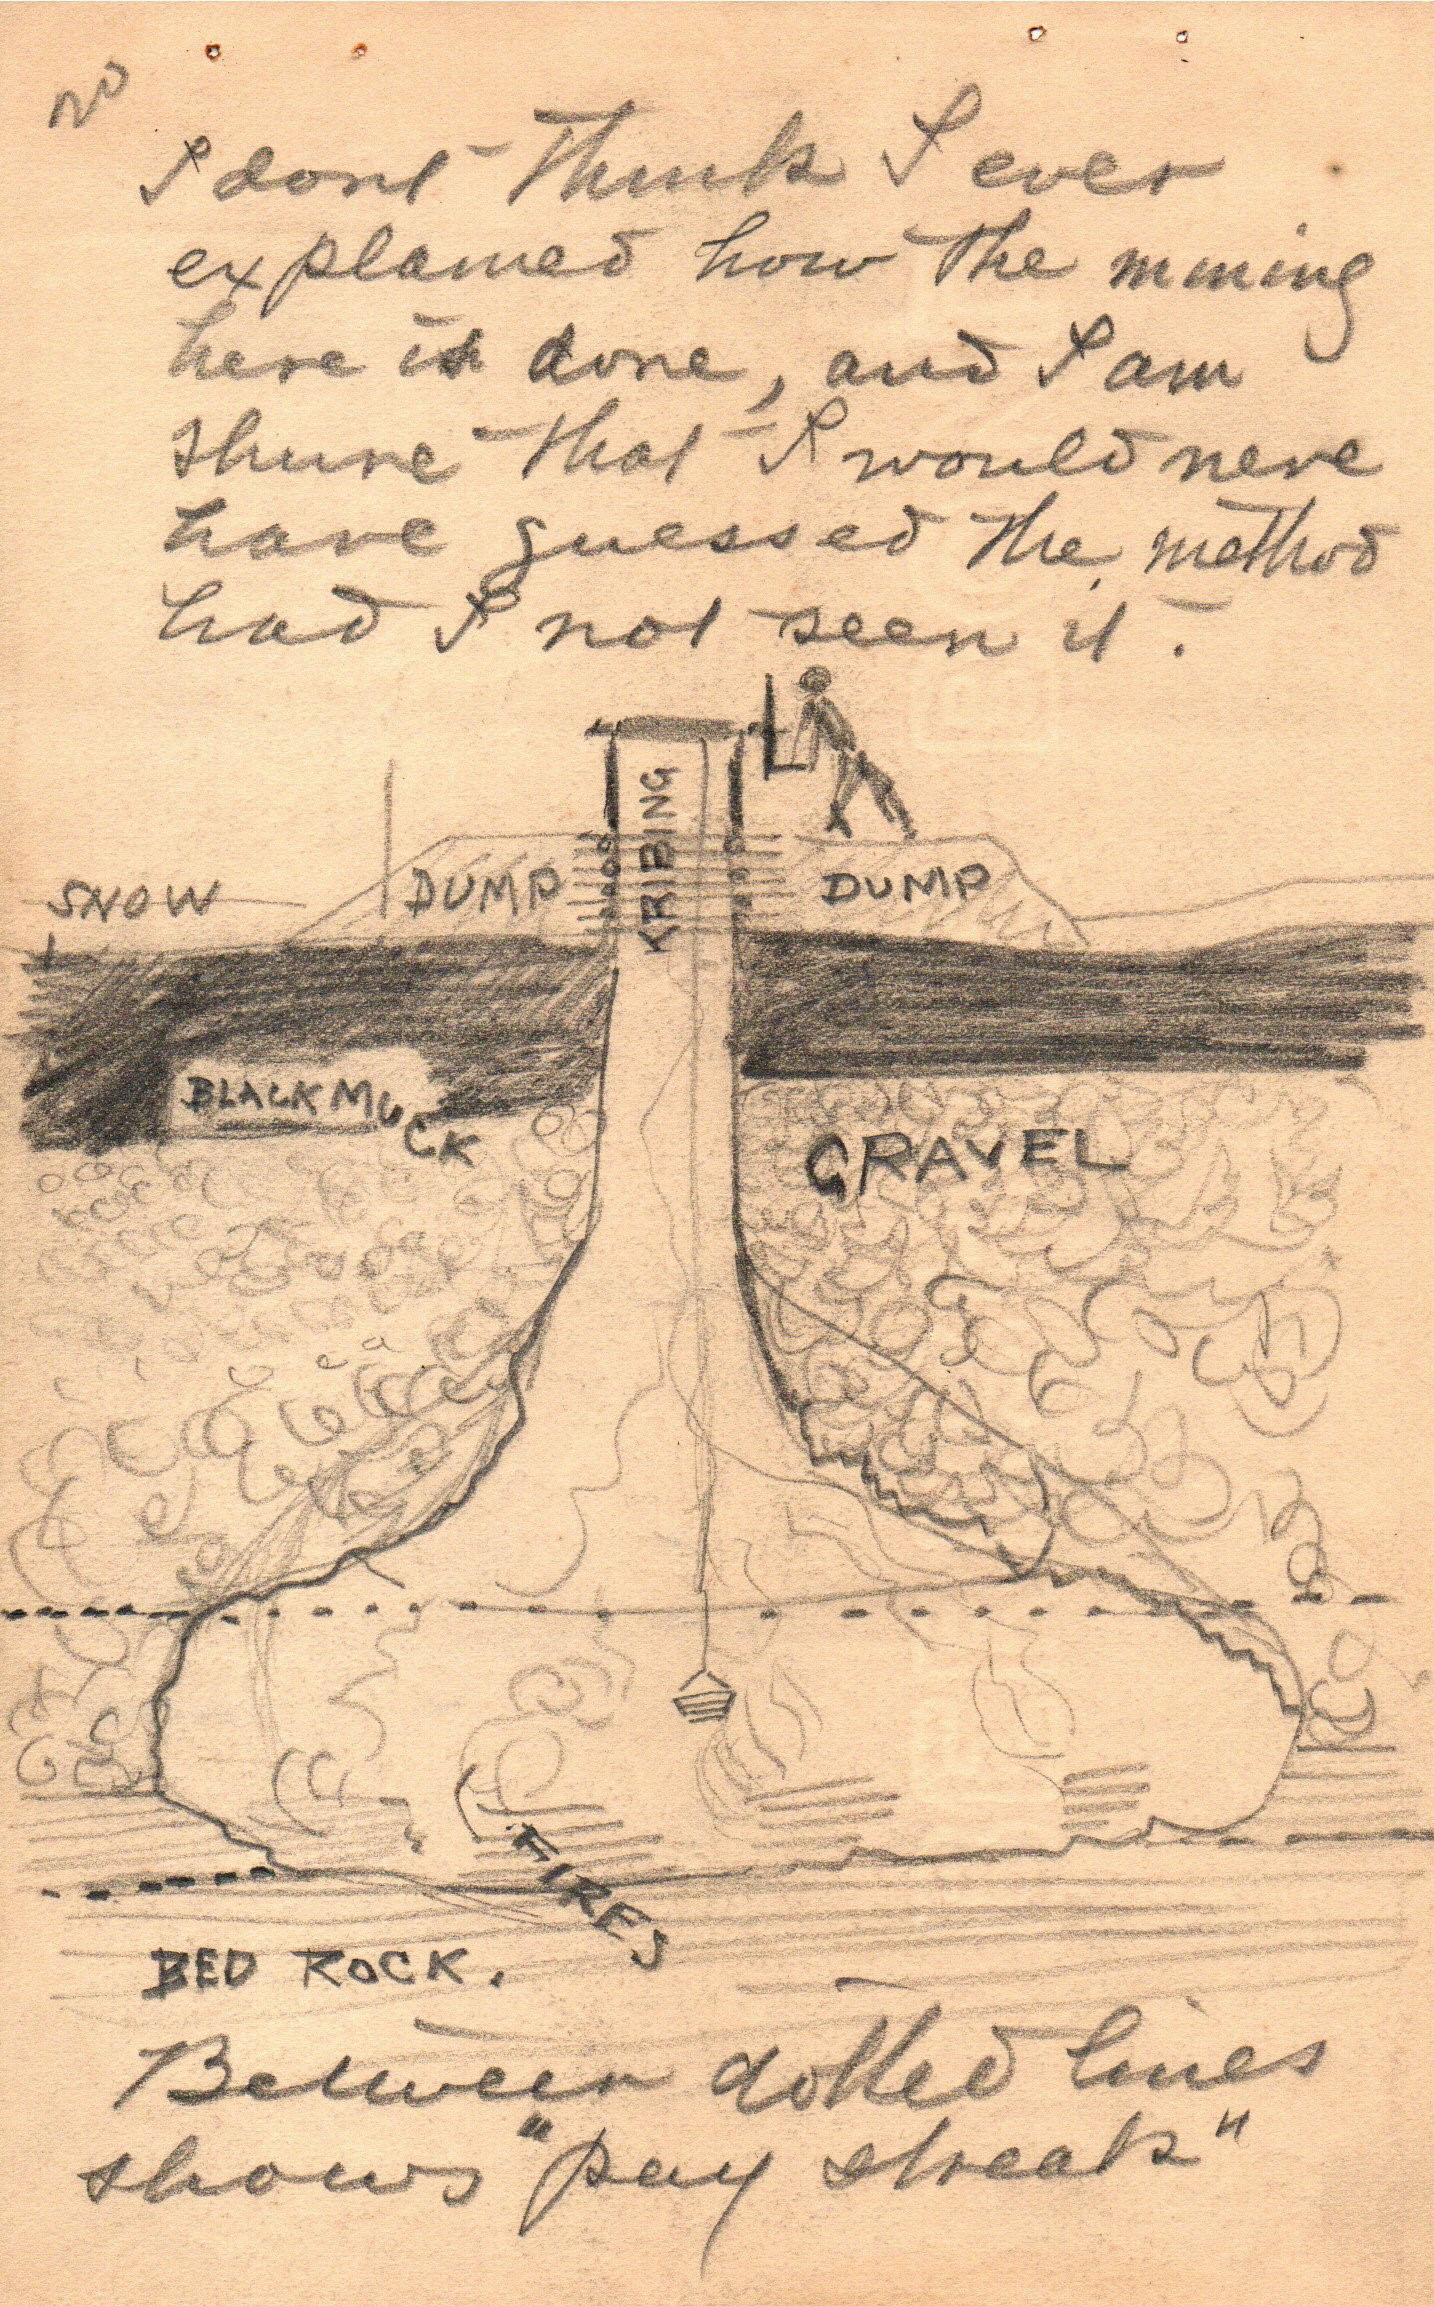 no
I dont think I ever
explained how the mining
here is done, and I am
shure that I would neve
have guessed the method
had I not seen it.
KRIBING
SNOW
DUMP
DUMP
BLACK MUCK
GRAVEL
FIRES
BED ROCK.
Between dotted lines
shows "pay streak"